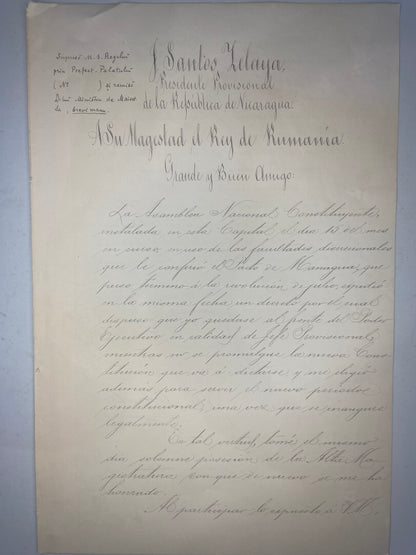 Supusă M. S. Regelui
prin Prefect. Palatului
(No ) și remisă
D-lui Ministru de
J. Santos Zelaya,
Presidente Provisional
de la República de Nicaragua.
A Su Magestad el Rey de Rumanía
Grande y Buen Amigo:
La Asamblea Nacional Constituyente,
instalada en esta Capital el día 15 del mes
en curso, en uso de las facultades discrecionales
que le confirió el Pacto de Managua, que
puso término á la revolución de julio, expidió
en la misma fecha un decreto por el cual
dispuso que yo quedase al frente del Poder
Ejecutivo en calidad de Jefe Provisional,
mientras no se promulgue la nueva Cons-
titución que vá á dictarse y me eligió
además para servir el nuevo periodo
constitucional, una vez que se inaugure
legalmente.
En tal virtud, tomé el mismo
día solemne posesión de la Alta Ma-
gistratura con que de nuevo se me ha
honrado.
Al participar lo expuesto á V.M.